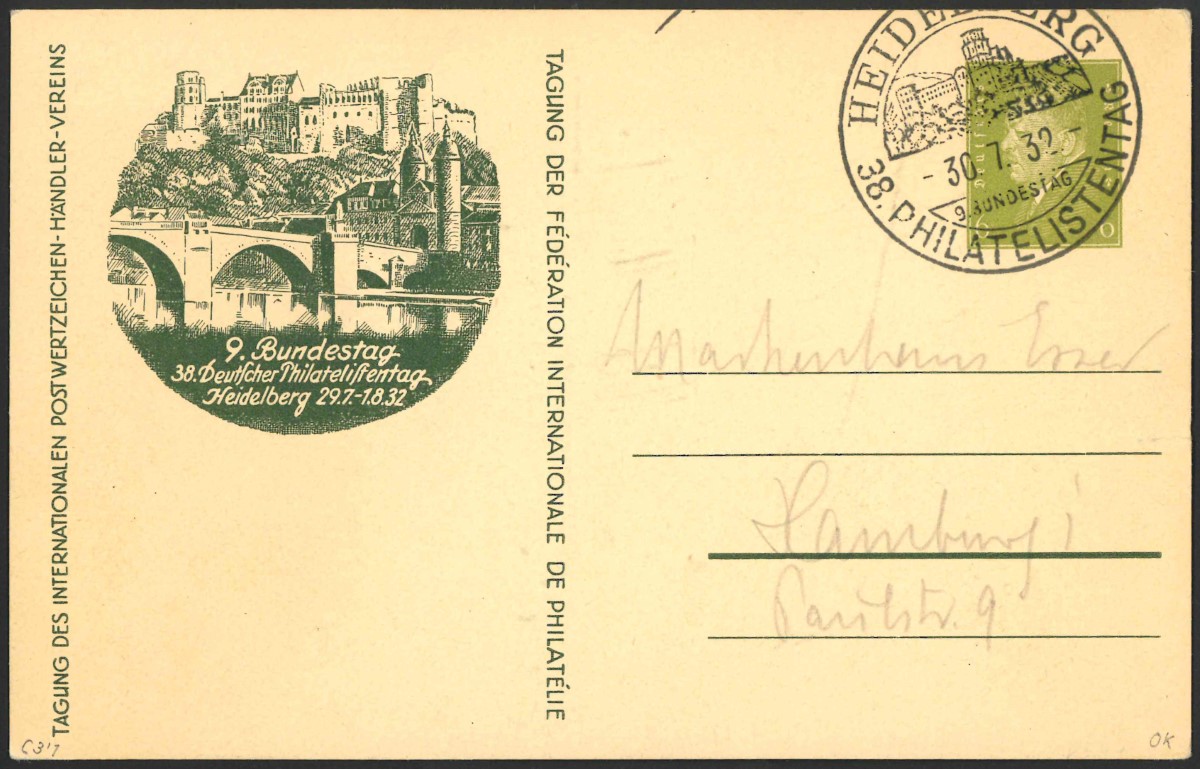 TAGUNG DES INTERNATIONALEN POSTWERTZEICHEN-HÄNDLER-VEREINS
9. Bundestag
38. Deutscher Philatelistentag
Heidelberg 29.7.-1.8.32
TAGUNG DER FÉDÉRATION INTERNATIONALE DE PHILATÉLIE
HEIDELBERG
- 30.7.32.-
9. BUNDESTAG
38. PHILATELISTENTAG
Markenhaus Esser
Hamburg 1
Paulstr. 9
OK